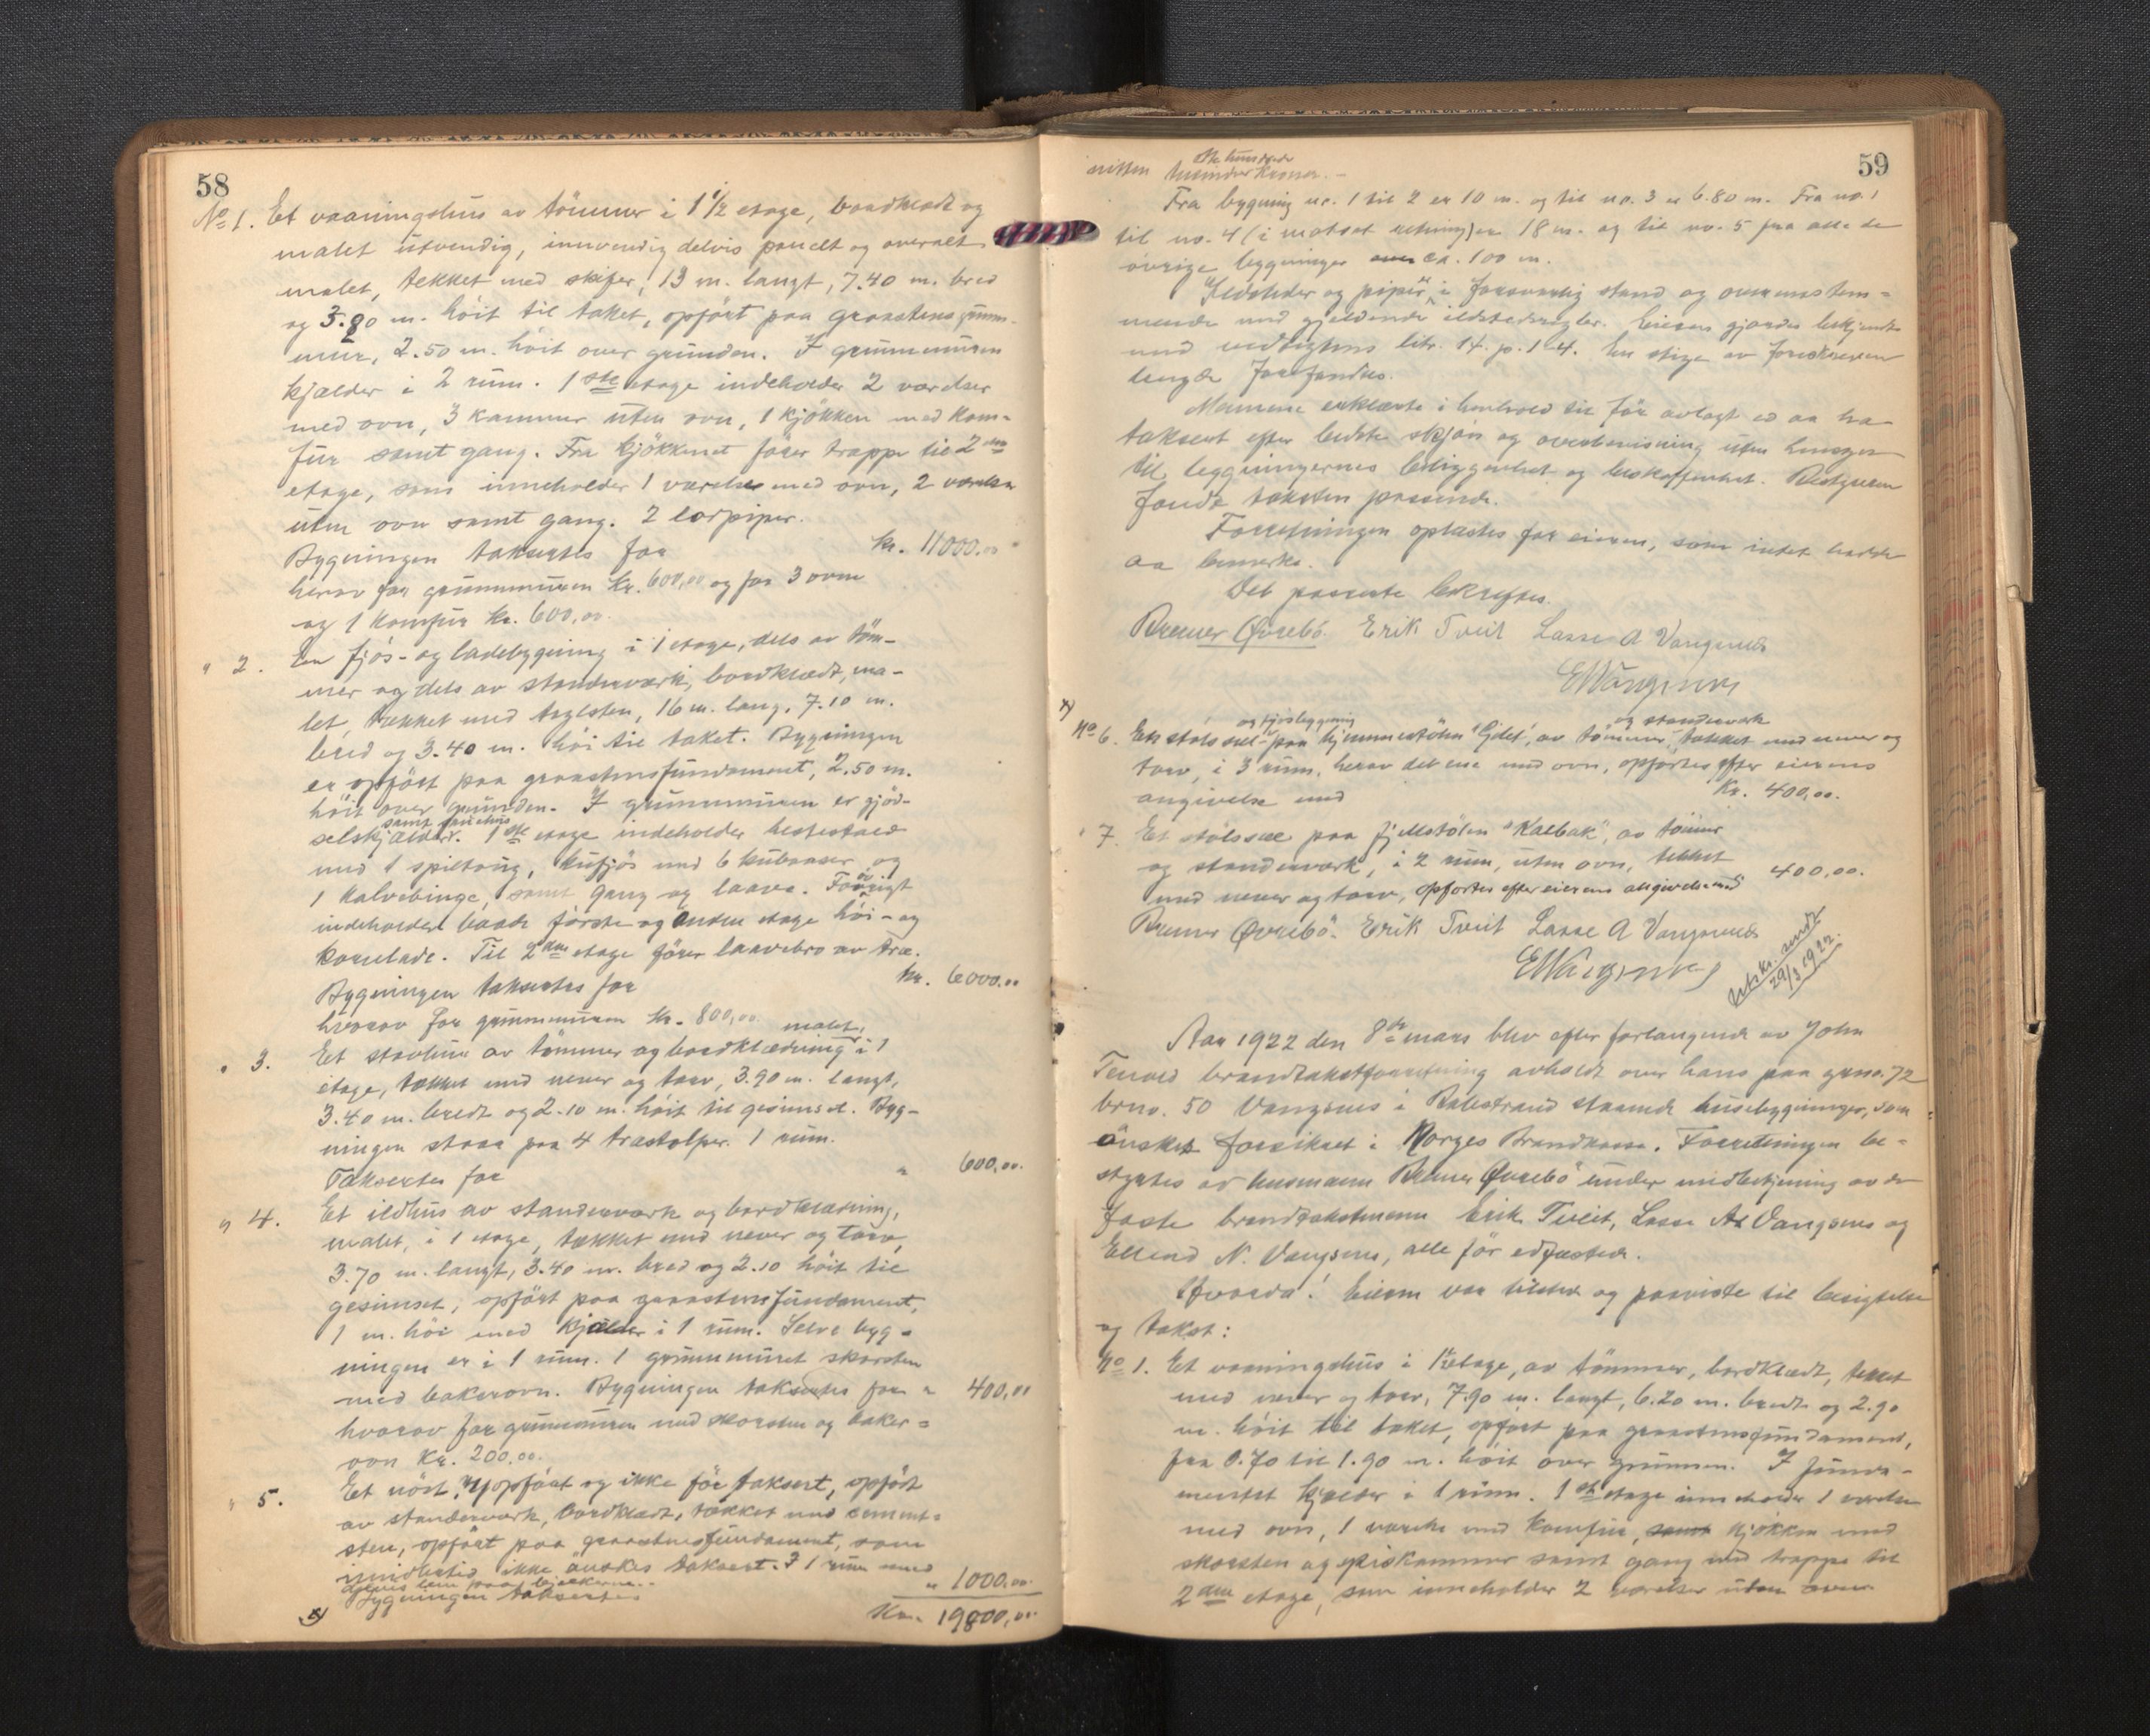 58
No 1. Et vaaningshus av tömmer i 1 1/2 etage, bordklædt og
malet utvendig, innvendig delvis panelt og overalt
malet, tekket med skifer, 13 m. langt, 7.40 m. bred
og 3.80 m. höit til taket, opfört paa graastens grunn-
mur, 2.50 m. höit over grunden. I grunnmuren
kjælder i 2 rum. 1ste etage indeholder 2 værelser
med ovn, 3 kammer uten ovn, 1 kjökken med kom-
fur samt gang. Fra kjökkenet förer trappe til 2den
etage, som inneholder 1 værelse med ovn, 2 værelser
uten ovn samt gang. 2 piper.
Bygningen takseres for kr. 11000.00
herav for grunnmuren Kr. 600,00 og for 3 ovne
og 1 komfur Kr. 600,00.
" 2. En fjös- og ladebygning i 1 etage, dels av töm-
mer og dels av standerværk, bordklædt, ma-
let, tækket med teglsten, 16 m. lang, 7.10 m.
bred og 3.40 m. höi til taket. Bygningen
er opfört paa graastensfundament, 2.50 m.
höit over grunden. I grunnmuren er gjöd-
selskjælder samt grishus. 1ste etage indeholder hestestald
med 1 spiltaug, kufjös med 6 kubaaser og
1 kalvebinge, samt gang og laave. Forövrigt
indeholder baade förste og anden etage höi- og
kornlade. Til 2den etage förer laavebro av træ.
Bygningen takseres for kr. 6000.00
hvorav for grunnmuren Kr. 800,00.
" 3. Et stabbur av tömmer og bordklædning, malet, i 1
etage, tækket med never og torv, 3.90 m. langt,
3.40 m. bredt og 2.10 m. höit til gesimset. Byg-
ningen staar paa 4 træstolper. 1 rum.
Takseres for " 600,00.
" 4. Et ildhus av standerværk og bordklædning,
malet, i 1 etage, tækket med never og torv,
3.70 m. langt, 3.40 m. bred og 2.10 höit til
gesimset, opfört paa graastensfundament,
1 m. höi med kjælder i 1 rum. Selve byg-
ningen er i 1 rum. 1 grunnmuret skorsten
med bakerovn. Bygningen takseres for " 400,00
hvorav for grunnmuren med skorsten og baker-
ovn Kr. 200.00.
" 5. Et nöst, nyopfört og ikke för taksert, opfört
av standerværk, bordklædt, tækket med cement-
sten, opfört paa graastensfundament, som
imidlertid ikke önskes taksert. I 1 rum med
lem paa bjælkerne.
Bygningen takseres " 1000,00.
x) Kr. 19800,00.
59
nitten tusinde otte hundrede kroner.-
Fra bygning nr. 1 til 2 er 10 m. og til no. 3 er 6.80 m. Fra no. 1
til no. 4 (i motsat retning) er 18 m. og til no. 5 fra alle de
övrige bygninger ca. 100 m.
Ildsteder og piper i forsvarlig stand og overensstem-
mende med gjeldende ildstedsregler. Eieren gjordes bekjendt
med vedtægtens litr. 14. p. 1-4. En stige av foreskreven
lengde forefandtes.
Mennene erklærte i henhold til för avlagt ed aa ha
taksert efter bedste skjön og overbevisning uten hensyn
til bygningernes beliggenhet og beskaffenhet. Bestyreren
fandt taksten passende.
Forretningen oplæstes for eieren, som intet hadde
aa bemerke.
Det passerte bekreftes.
Bremer Øvrebö. Erik Tveit Lasse A Vangsnes
E N Vangsnes
x)
No 6. Et stölssel og fjösbygning paa hjemmestölen "Gilet", av tömmer og standerværk, tækket med never og
torv, i 3 rum, herav det ene med ovn, opföres efter eierens
angivelse med Kr. 400,00.
" 7. Et stölssel paa fjellstölen "Kalbak", av tömmer
og standerværk, i 2 rum, uten ovn, tekket
med never og torv, opföres efter eierens angivelse med 400,00.
Bremer Øvrebö. Erik Tveit Lasse A Vangsnes
E N Vangsnes
Utskr. sendt
29/3 1922.
Aar 1922 den 8de mars blev efter forlangende av John
Tenold brandtakstforretning avholdt over hans paa grno. 72
brno. 50 Vangsnes i Balestrand staaende husebygninger, som
önskes forsikret i Norges Brandkasse. Forretningen be-
styrtes av lensmann Bremer Øvrebö under medbetjening av de
faste brandtakstmenn Erik Tveit, Lasse A. Vangsnes og
Ellend N. Vangsnes, alle för edfæstede.
Hvorda! Eieren var tilstede og paaviste til besigtelse
og takst:
No 1. Et vaaningshus i 1 1/2 etage, av tömmer, bordklædt, tekket
med never og torv, 7.90 m. langt, 6.20 m. bredt og 2.90
m. höit til taket, opfört paa graastensfundament,
fra 0.70 til 1.90 m. höit over grunnen. I funda-
mentet kjelder i 1 rum. 1ste etage inneholder 1 værelse
med ovn, 1 værelse med komfur, samt kjökken med
skorsten og spiskammer samt gang med trappe til
2den etage, som inneholder 2 værelser uten ovn